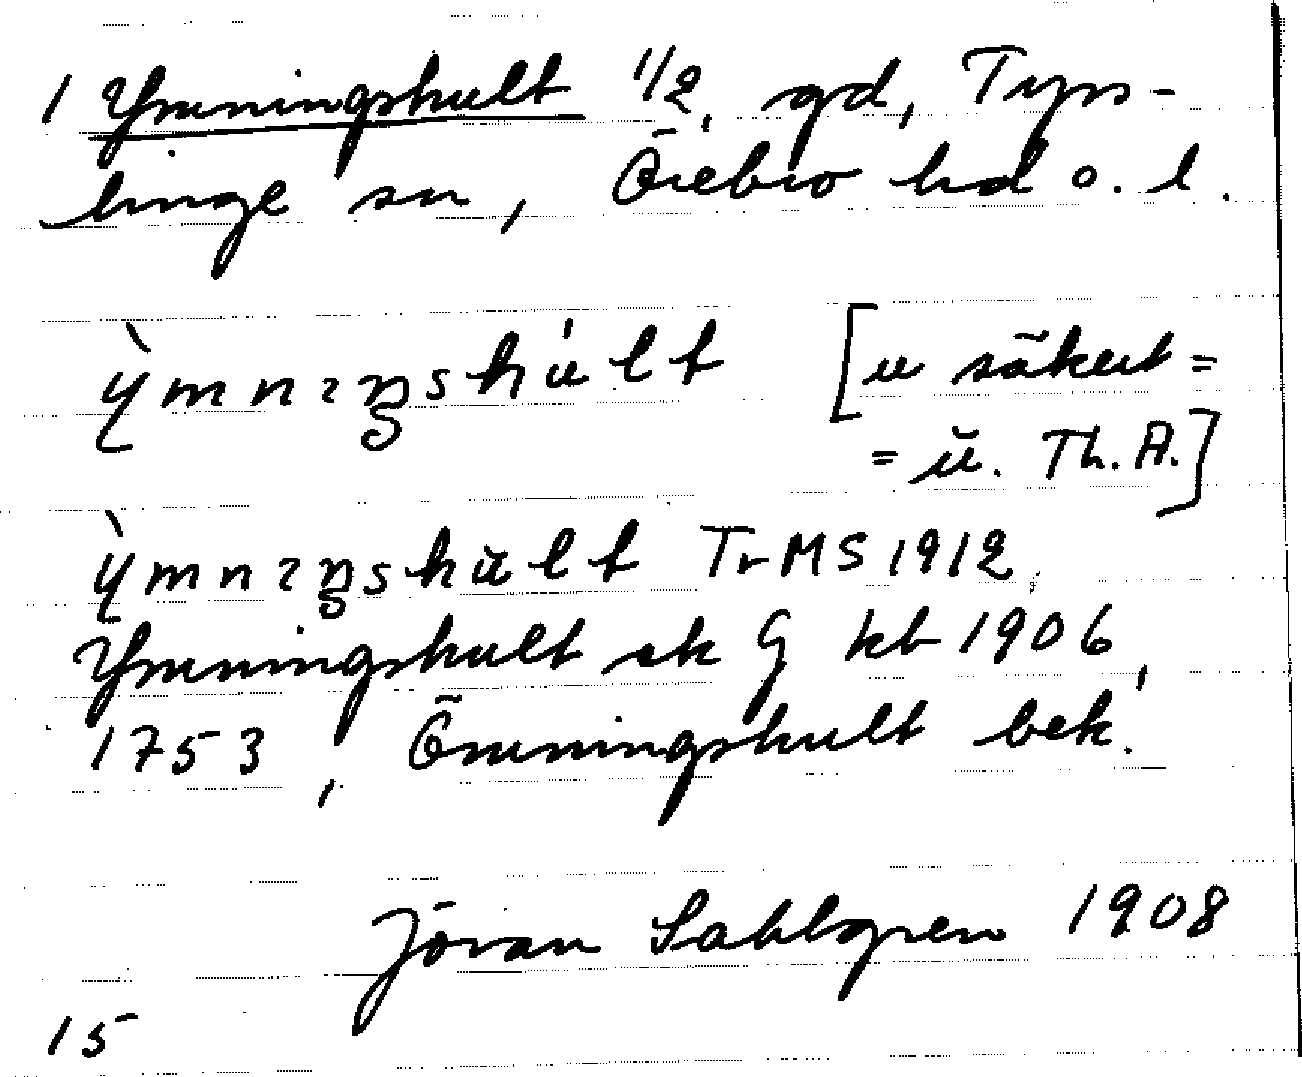 1 Ymningshult 1/2, gd, Tyss-
linge sn, Örebro hd o. l.
ỳmnıŋshu̍lt [u säkert =
= ŭ. Th. A.]
ỳmnıŋshŭlt TrMS 1912,
Ymningshult sk G kb 1906,
1753, Ömningshult bek.
Jöran Sahlgren 1908
15